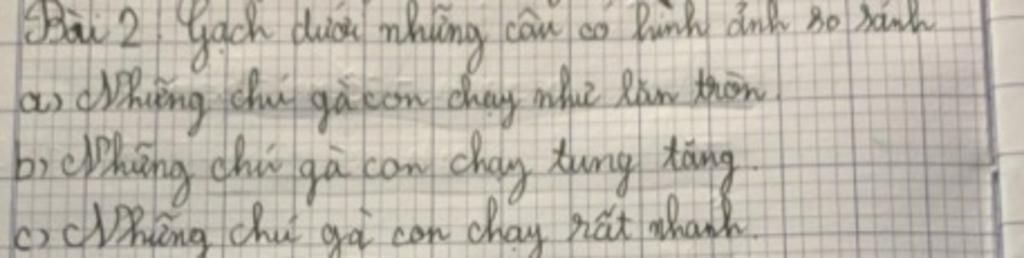 Bài 2: Gạch dưới những câu có hình ảnh so sánh
a) Những chú gà con chạy như lăn tròn.
b) Những chú gà con chạy tung tăng.
c) Những chú gà con chạy rất nhanh.